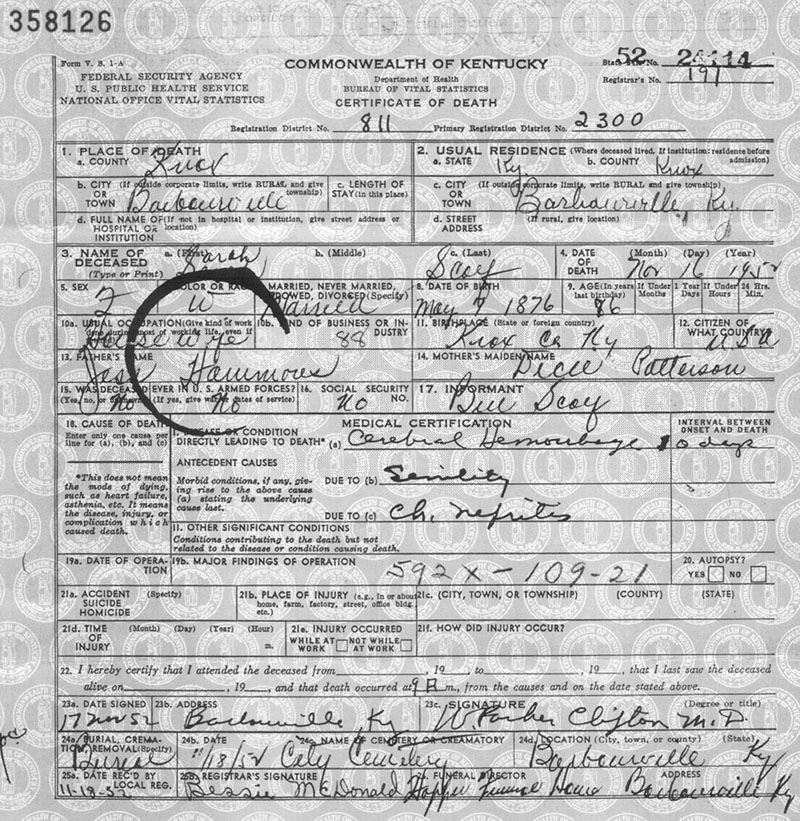 358126
Form V. S. 1-A COMMONWEALTH OF KENTUCKY
FEDERAL SECURITY AGENCY Department of Health State File No. 52
U. S. PUBLIC HEALTH SERVICE BUREAU OF VITAL STATISTICS Registrar's No. 191
NATIONAL OFFICE VITAL STATISTICS CERTIFICATE OF DEATH
Registration District No. 811 Primary Registration District No. 2300
1. PLACE OF DEATH
a. COUNTY Knox
2. USUAL RESIDENCE (Where deceased lived. If institution: residence before admission)
a. STATE Ky b. COUNTY Knox
b. CITY (If outside corporate limits, write RURAL and give township)
OR TOWN Barbourville
c. LENGTH OF STAY (in this place)
c. CITY (If outside corporate limits, write RURAL and give township)
OR TOWN Barbourville Ky.
d. FULL NAME OF (If not in hospital or institution, give street address or location)
HOSPITAL OR INSTITUTION
d. STREET ADDRESS (If rural, give location)
3. NAME OF DECEASED (Type or Print)
a. (First) Sarah b. (Middle) c. (Last) Scoy
4. DATE OF DEATH (Month) (Day) (Year)
Nov 16 1952
5. SEX F
COLOR OR RACE W
MARRIED, NEVER MARRIED, WIDOWED, DIVORCED (Specify) Married
8. DATE OF BIRTH May 7 1876
9. AGE (In years last birthday) 86
If Under 1 Year Months Days
If Under 24 Hrs. Hours Min.
10a. USUAL OCCUPATION (Give kind of work done during most of working life, even if
House Wife
10b. KIND OF BUSINESS OR INDUSTRY 88
11. BIRTHPLACE (State or foreign country) Knox Co Ky
12. CITIZEN OF WHAT COUNTRY? USA
13. FATHER'S NAME Hammons
14. MOTHER'S MAIDEN NAME Dicie Patterson
15. WAS DECEASED EVER IN U. S. ARMED FORCES?
(Yes, no, or unknown) (If yes, give war or dates of service)
No No
16. SOCIAL SECURITY NO. No
17. INFORMANT Bill Scoy
18. CAUSE OF DEATH
Enter only one cause per line for (a), (b), and (c)
MEDICAL CERTIFICATION
INTERVAL BETWEEN ONSET AND DEATH
I. DISEASE OR CONDITION
DIRECTLY LEADING TO DEATH* (a) Cerebral Hemorrhage 10 days
*This does not mean the mode of dying, such as heart failure, asthenia, etc. It means the disease, injury, or complication which caused death.
ANTECEDENT CAUSES
Morbid conditions, if any, giving rise to the above cause (a) stating the underlying cause last.
DUE TO (b) Senility
DUE TO (c) Ch. Nefrites
II. OTHER SIGNIFICANT CONDITIONS
Conditions contributing to the death but not related to the disease or condition causing death.
19a. DATE OF OPERATION
19b. MAJOR FINDINGS OF OPERATION
592X-109-21
20. AUTOPSY?
YES NO
21a. ACCIDENT SUICIDE HOMICIDE (Specify)
21b. PLACE OF INJURY (e.g., in or about home, farm, factory, street, office bldg. etc.)
21c. (CITY, TOWN, OR TOWNSHIP) (COUNTY) (STATE)
21d. TIME OF INJURY (Month) (Day) (Year) (Hour) m.
21e. INJURY OCCURRED
WHILE AT WORK NOT WHILE AT WORK
21f. HOW DID INJURY OCCUR?
22. I hereby certify that I attended the deceased from , 19 to , 19 , that I last saw the deceased
alive on , 19 , and that death occurred at 9 P m., from the causes and on the date stated above.
23a. DATE SIGNED 17 Nov 52
23b. ADDRESS Barbourville Ky
23c. SIGNATURE (Degree or title)
W Parker Clifton M.D.
24a. BURIAL, CREMATION, REMOVAL (Specify) Burial
24b. DATE 11/18/52
24c. NAME OF CEMETERY OR CREAMATORY City Cemetery
24d. LOCATION (City, town, or county) (State)
Barbourville Ky
25a. DATE REC'D BY LOCAL REG. 11-18-52
25b. REGISTRAR'S SIGNATURE Bessie McDonald
FUNERAL DIRECTOR ADDRESS
Hopper Funeral Home Barbourville Ky